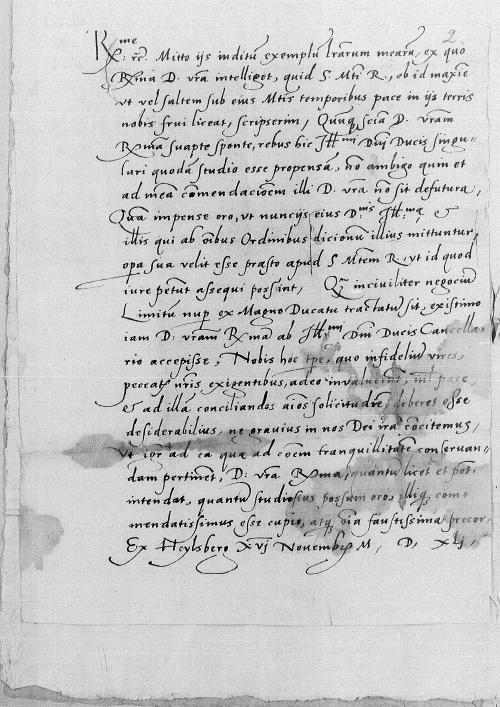 2
R^me
R: etc. Mitto ijs inditū exemplū lrarum mearū, ex quo
Rma D. vra intelliget, quid S. Mti R., ob id maxīe
vt vel saltem sub eius Mtis temporibus pace in ijs terris
nobis frui liceat, scripserim, Quuq, sciā D. vram
Rmā suapte sponte, rebus hic Jll^mi Dni Ducis singu-
lari quodā studio esse propensā, nō ambigo quin et
ad meā cōmendacioem illi D. vra nō sit defutura,
Quā impense oro, vt nuncijs eius D^nis Jll:^mę &
illis qui ab oibus Ordinibus dicionū illius mittuntur,
opā sua velit esse pręsto apud S. Mtem R. vt id quod
iure petūt assequi possint, inciuiliter negociū
Limitū nup ex Magno Ducatu tractatū sit, existimo
iam D: vram Rmā ab Jll^mi Dni Ducis Cancella-
rio accepisse, Nobis hoc tpe, quo infideliū vires,
peccatis nris exigentibus, adeo inualuerūt, nil pace,
& ad illā conciliandos aios solicitudīe, deberet esse
desiderabilius, ne grauius in nos Dei irā cōcitemus,
vt igr ad ea quę ad cōem tranquillitatē conseruan-
dam pertinēt, D: vra Rma, quantū licet et pot:
intendat, quantū studiosius possum oro, illiq, com-
mendatissimus esse cupio, atq, oīa faustissima precor,
Ex Heylsberg XVj Nouembris M, D, XLj,